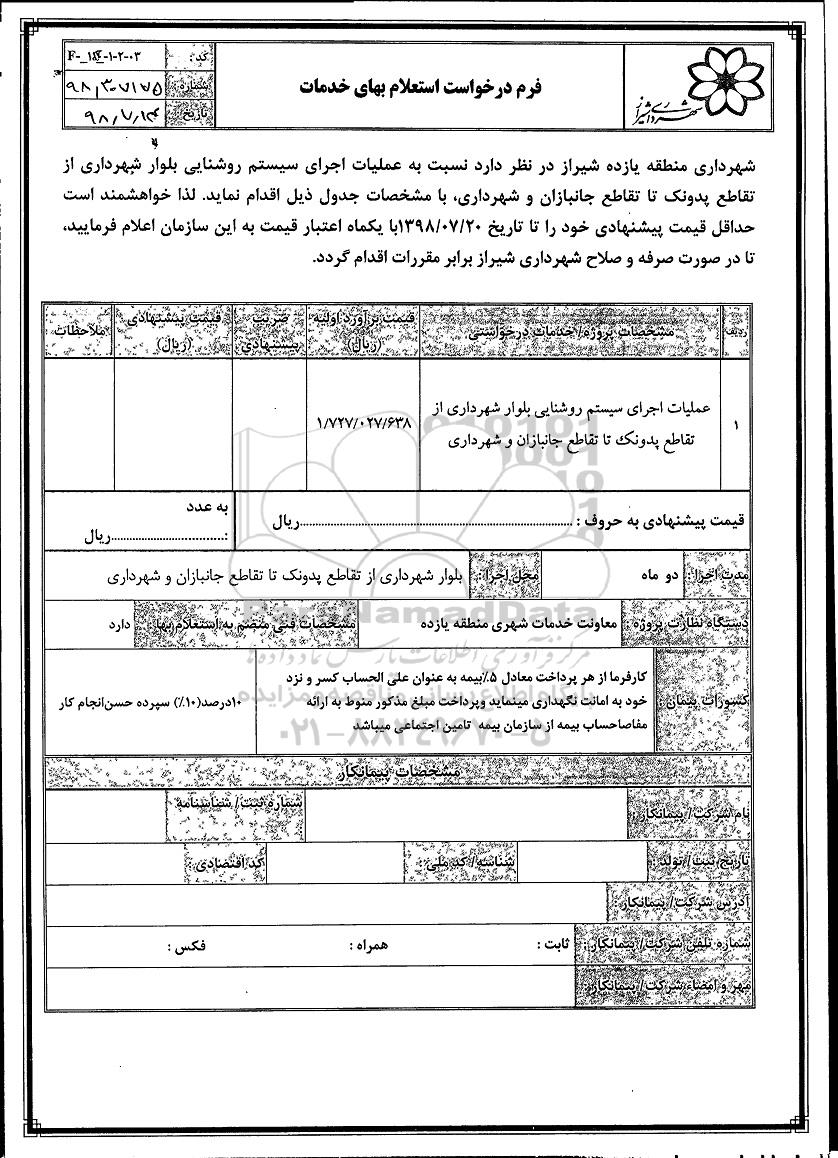 کد : F-_۱۸۴-۱-۲-۰۳
شماره : ۹۸,۳۰۷۱۷۵
تاریخ : ۹۸/۷/۱۴
فرم درخواست استعلام بهای خدمات
شهرداری شیراز
شهرداری منطقه یازده شیراز در نظر دارد نسبت به عملیات اجرای سیستم روشنایی بلوار شهرداری از
تقاطع پدونک تا تقاطع جانبازان و شهرداری، با مشخصات جدول ذیل اقدام نماید. لذا خواهشمند است
حداقل قیمت پیشنهادی خود را تا تاریخ ۱۳۹۸/۰۷/۲۰با یکماه اعتبار قیمت به این سازمان اعلام فرمایید،
تا در صورت صرفه و صلاح شهرداری شیراز برابر مقررات اقدام گردد.
ردیف مشخصات پروژه/ خدمات درخواستی قیمت برآورد اولیه (ریال) ضریب پیشنهادی قیمت پیشنهادی (ریال) ملاحظات
۱ عملیات اجرای سیستم روشنایی بلوار شهرداری از
تقاطع پدونک تا تقاطع جانبازان و شهرداری
۱/۷۲۷/۰۲۷/۶۳۸
قیمت پیشنهادی به حروف : ............................................................ریال
به عدد
:..................................ریال
مدت اجرا : دو ماه محل اجرا : بلوار شهرداری از تقاطع پدونک تا تقاطع جانبازان و شهرداری
دستگاه نظارت پروژه : معاونت خدمات شهری منطقه یازده مشخصات فنی منضم به استعلام بها : دارد
کسورات پیمان :
کارفرما از هر پرداخت معادل ۵٪بیمه به عنوان علی الحساب کسر و نزد
خود به امانت نگهداری مینماید وپرداخت مبلغ مذکور منوط به ارائه
مفاصاحساب بیمه از سازمان بیمه تامین اجتماعی میباشد
۱۰درصد(۱۰٪) سپرده حسن‌انجام کار
مشخصات پیمانکار
نام شرکت/ پیمانکار : شماره ثبت/ شناسنامه
تاریخ ثبت/ تولد : شناسه/ کد ملی : کد اقتصادی :
آدرس شرکت/ پیمانکار :
شماره تلفن شرکت/ پیمانکار : ثابت : همراه : فکس :
مهر و امضاء شرکت/ پیمانکار :
ParsNamadData
مرکز فرآوری اطلاعات پارس نماد داده‌ها
پایگاه اطلاع رسانی مناقصه و مزایده